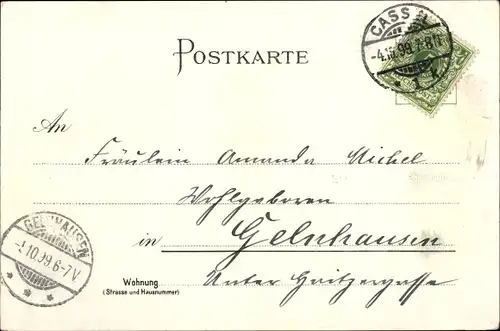 POSTKARTE
CASSEL
-4.10.99.7-8N
An
Fräulein Amanda Michel
Wohlgeboren
in Gelnhausen
GELNHAUSEN
10.99.6-7V
Wohnung
(Strasse und Hausnummer)
Unter Haitzergasse